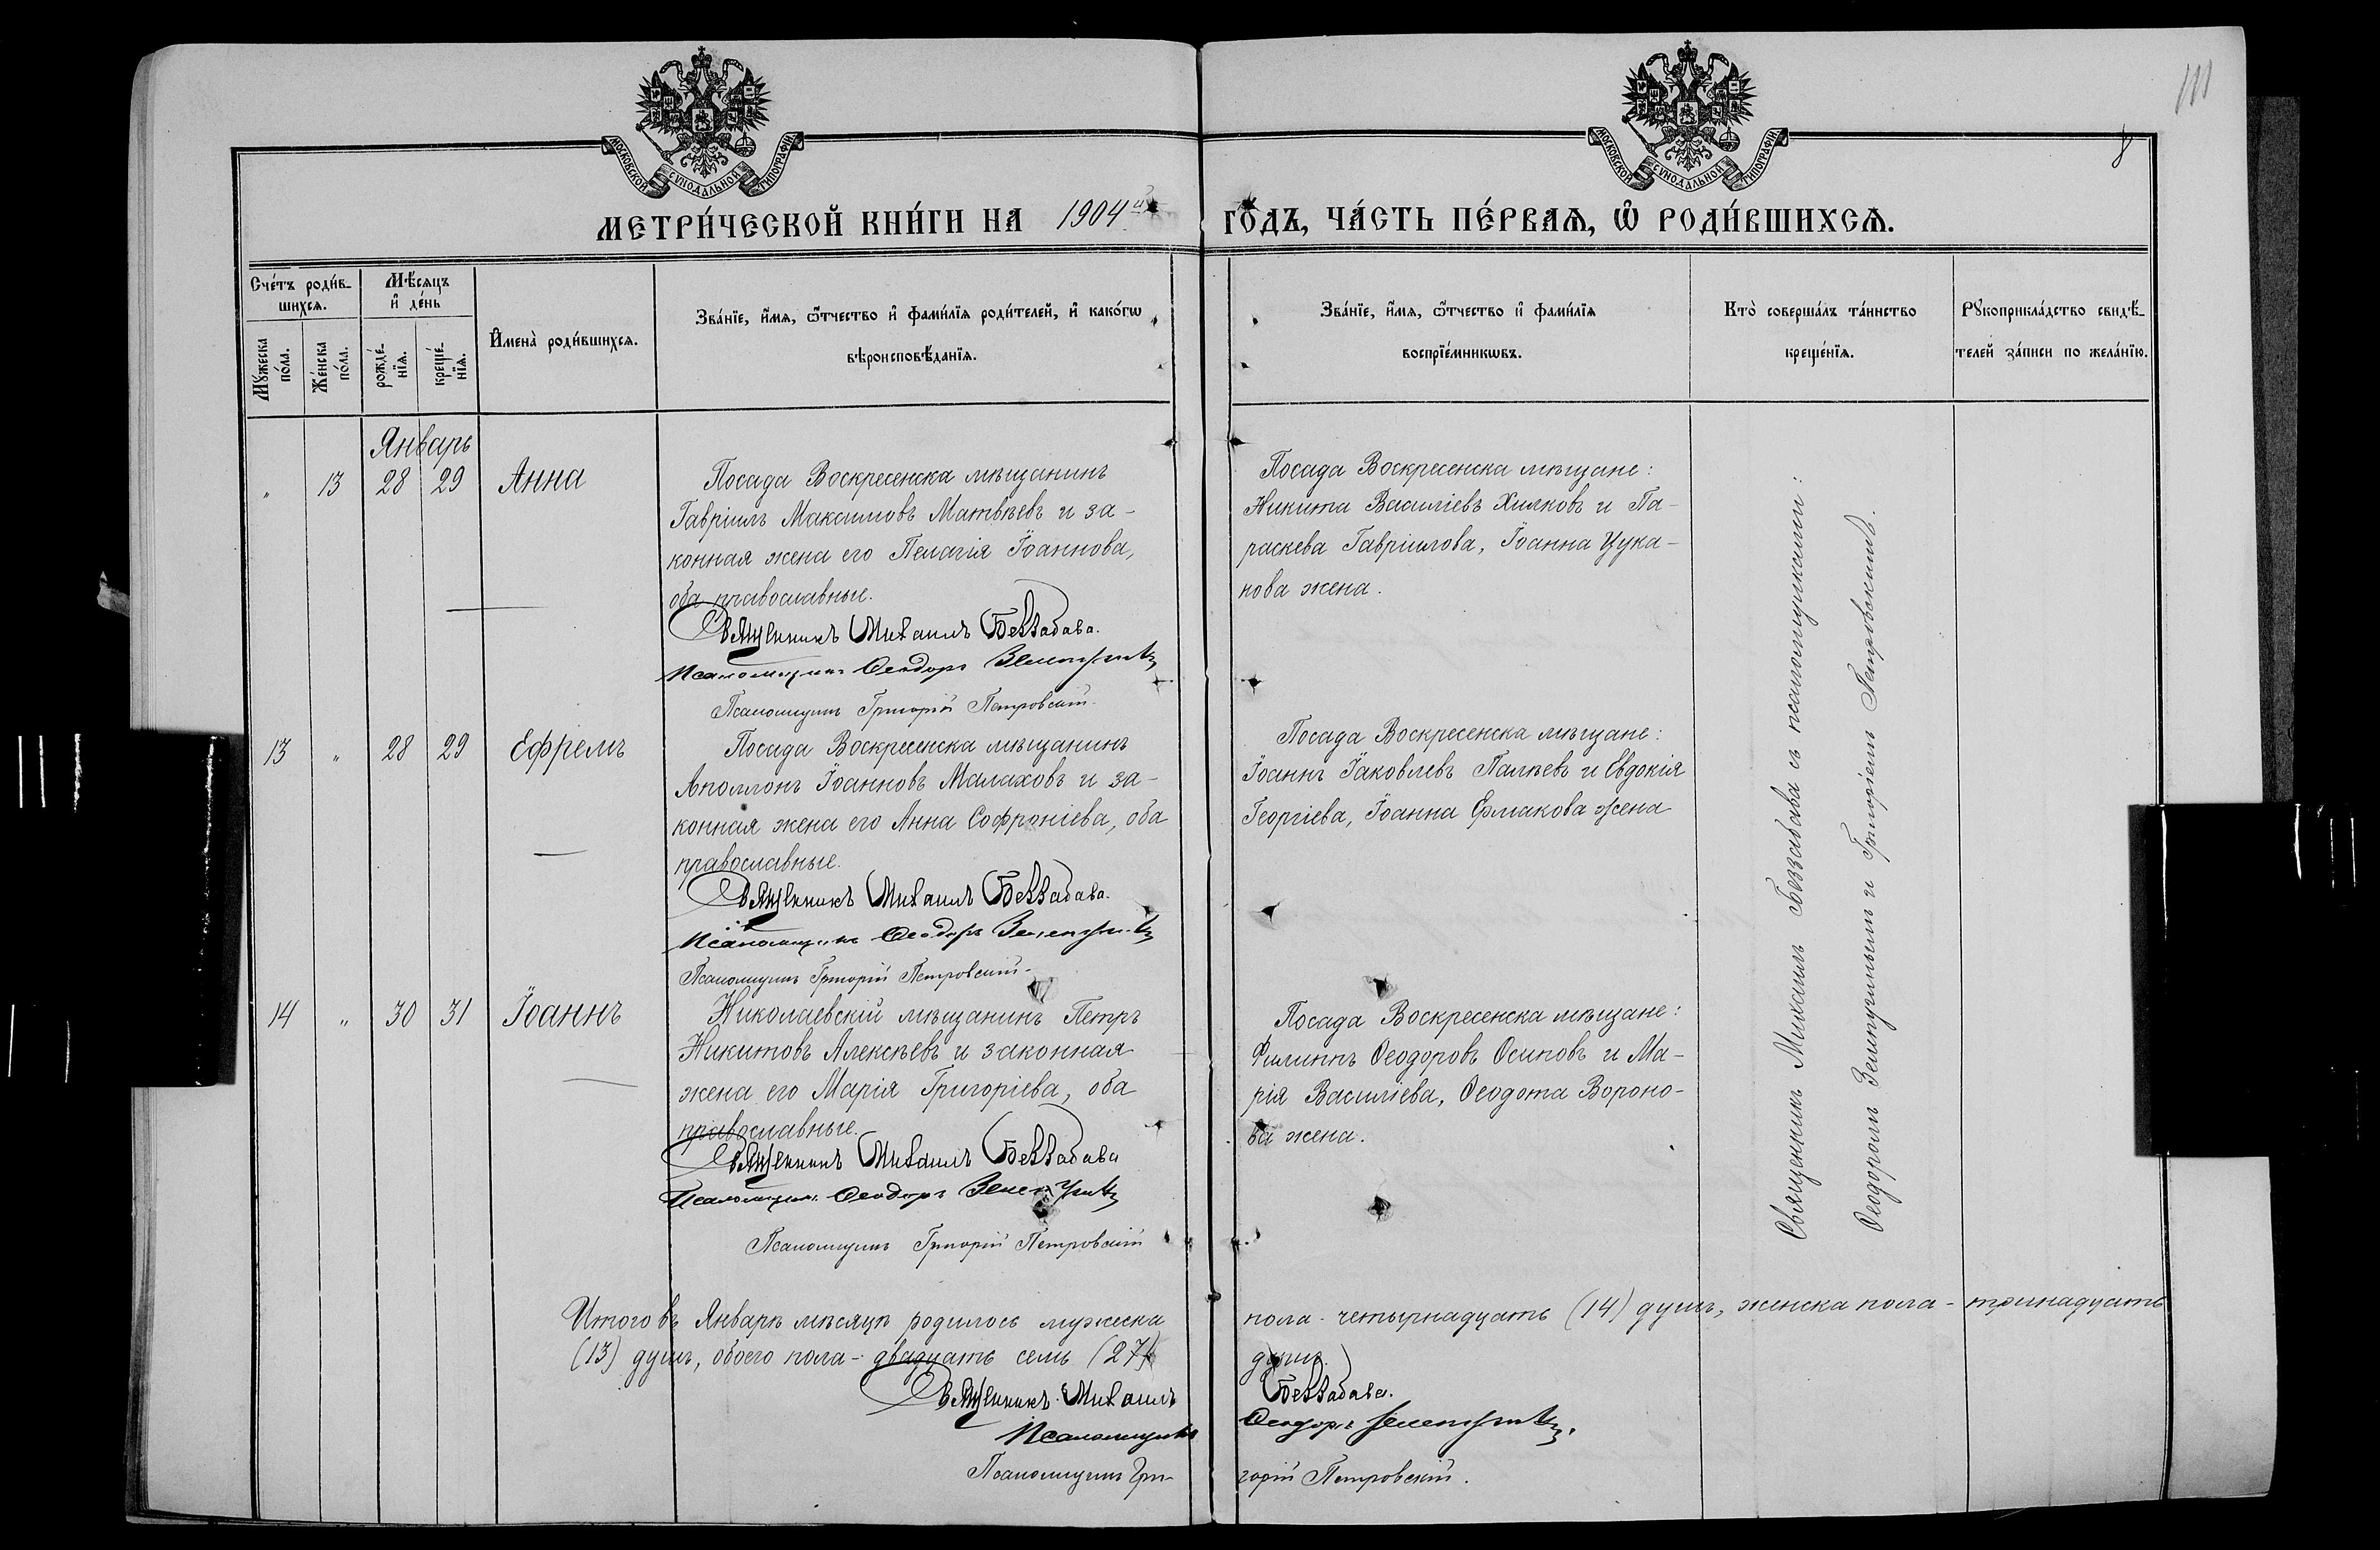 111
8
МОСКОВСКОЙ СУНОДАЛЬНОЙ ТИПОГРАФІИ
МОСКОВСКОЙ СУНОДАЛЬНОЙ ТИПОГРАФІИ
МЕТРИ́ЧЕСКОЙ КНИ́ГИ НА 1904й ГО́ДЪ, ЧА́СТЬ ПЕ́РВАѦ, Ѡ҆ РОДИ́ВШИХСѦ.
Сче́тъ роди́в-
шихсѧ.
Мꙋ́жеска
по́ла.
Же́нска
по́ла.
Мѣ́сѧцъ
и҆ де́нь
рожде́-
нїѧ.
креще́-
нїѧ.
И҆мена̀ роди́вшихсѧ.
Зва́нїе, и҆́мѧ, ѻ҆́тчество и҆ фами́лїѧ роди́телей, и҆ како́гѡ
вѣроисповѣ́данїѧ.
Зва́нїе, и҆́мѧ, ѻ҆́тчество и҆ фами́лїѧ
воспрїе́мникѡвъ.
Кто̀ соверша́лъ та́инство
креще́нїѧ.
Рꙋкоприкла́дство свидѣ́-
телей за́писи по жела́нїю.
Январь
" 13 28 29 Анна
Посада Воскресенска мѣщанинъ
Гавріилъ Максимовъ Матвѣевъ и за-
конная жена его Пелагія Іоаннова,
оба православные.
Священникъ Михаилъ Беззабава.
Псаломщикъ Ѳеодоръ
Псаломщикъ Григорій Петровскій.
Посада Воскресенска мѣщане:
Никита Василіевъ Хилковъ и Па-
раскева Гавріилова, Іоанна Цука-
нова жена.
13 " 28 29 Ефремъ
Посада Воскресенска мѣщанинъ
Аполлонъ Іоанновъ Малаховъ и за-
конная жена его Анна Софроніева, оба
православные.
Священникъ Михаилъ Беззабава.
Псаломщикъ Ѳеодоръ
Псаломщикъ Григорій Петровскій.
Посада Воскресенска мѣщане:
Іоаннъ Іаковлевъ Палѣевъ и Евдокія
Георгіева, Іоанна Ермакова жена
14 " 30 31 Іоаннъ
Николаевскій мѣщанинъ Петръ
Никитовъ Алексѣевъ и законная
жена его Марія Григоріева, оба
православные.
Священникъ Михаилъ Беззабава
Псаломщикъ Ѳеодоръ
Псаломщикъ Григорій Петровскій
Посада Воскресенска мѣщане:
Филиппъ Ѳеодоровъ Осиповъ и Ма-
рія Василіева, Ѳеодота Вороно-
ва жена.
Священникъ Михаилъ Беззабава съ псаломщиками:
Ѳеодоромъ и Григоріемъ Петровскимъ.
Итого въ Январѣ мѣсяцѣ родилось мужеска пола - четырнадцать (14) душъ, женска пола - тринадцать
(13) душъ, обоего пола - двадцать семь (27) душъ.
Священникъ Михаилъ Беззабава.
Псаломщикъ Ѳеодоръ
Псаломщикъ Григорій Петровскій.